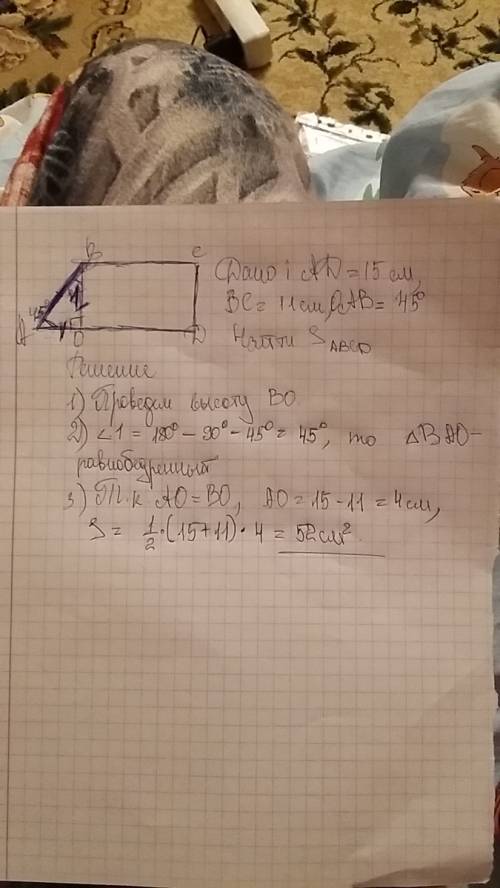 B C
45° 1
A O D
Дано: AD = 15 см,
BC = 11 см, OAB = 45°
Найти S ABCD
Решение
1) Проведем высоту BO
2) ∠1 = 180° - 90° - 45° = 45°, то △BAO -
равнобедренный
3) Т.к AO = BO, AO = 15 - 11 = 4 см,
S = 1/2 · (15 + 11) · 4 = 52 см²